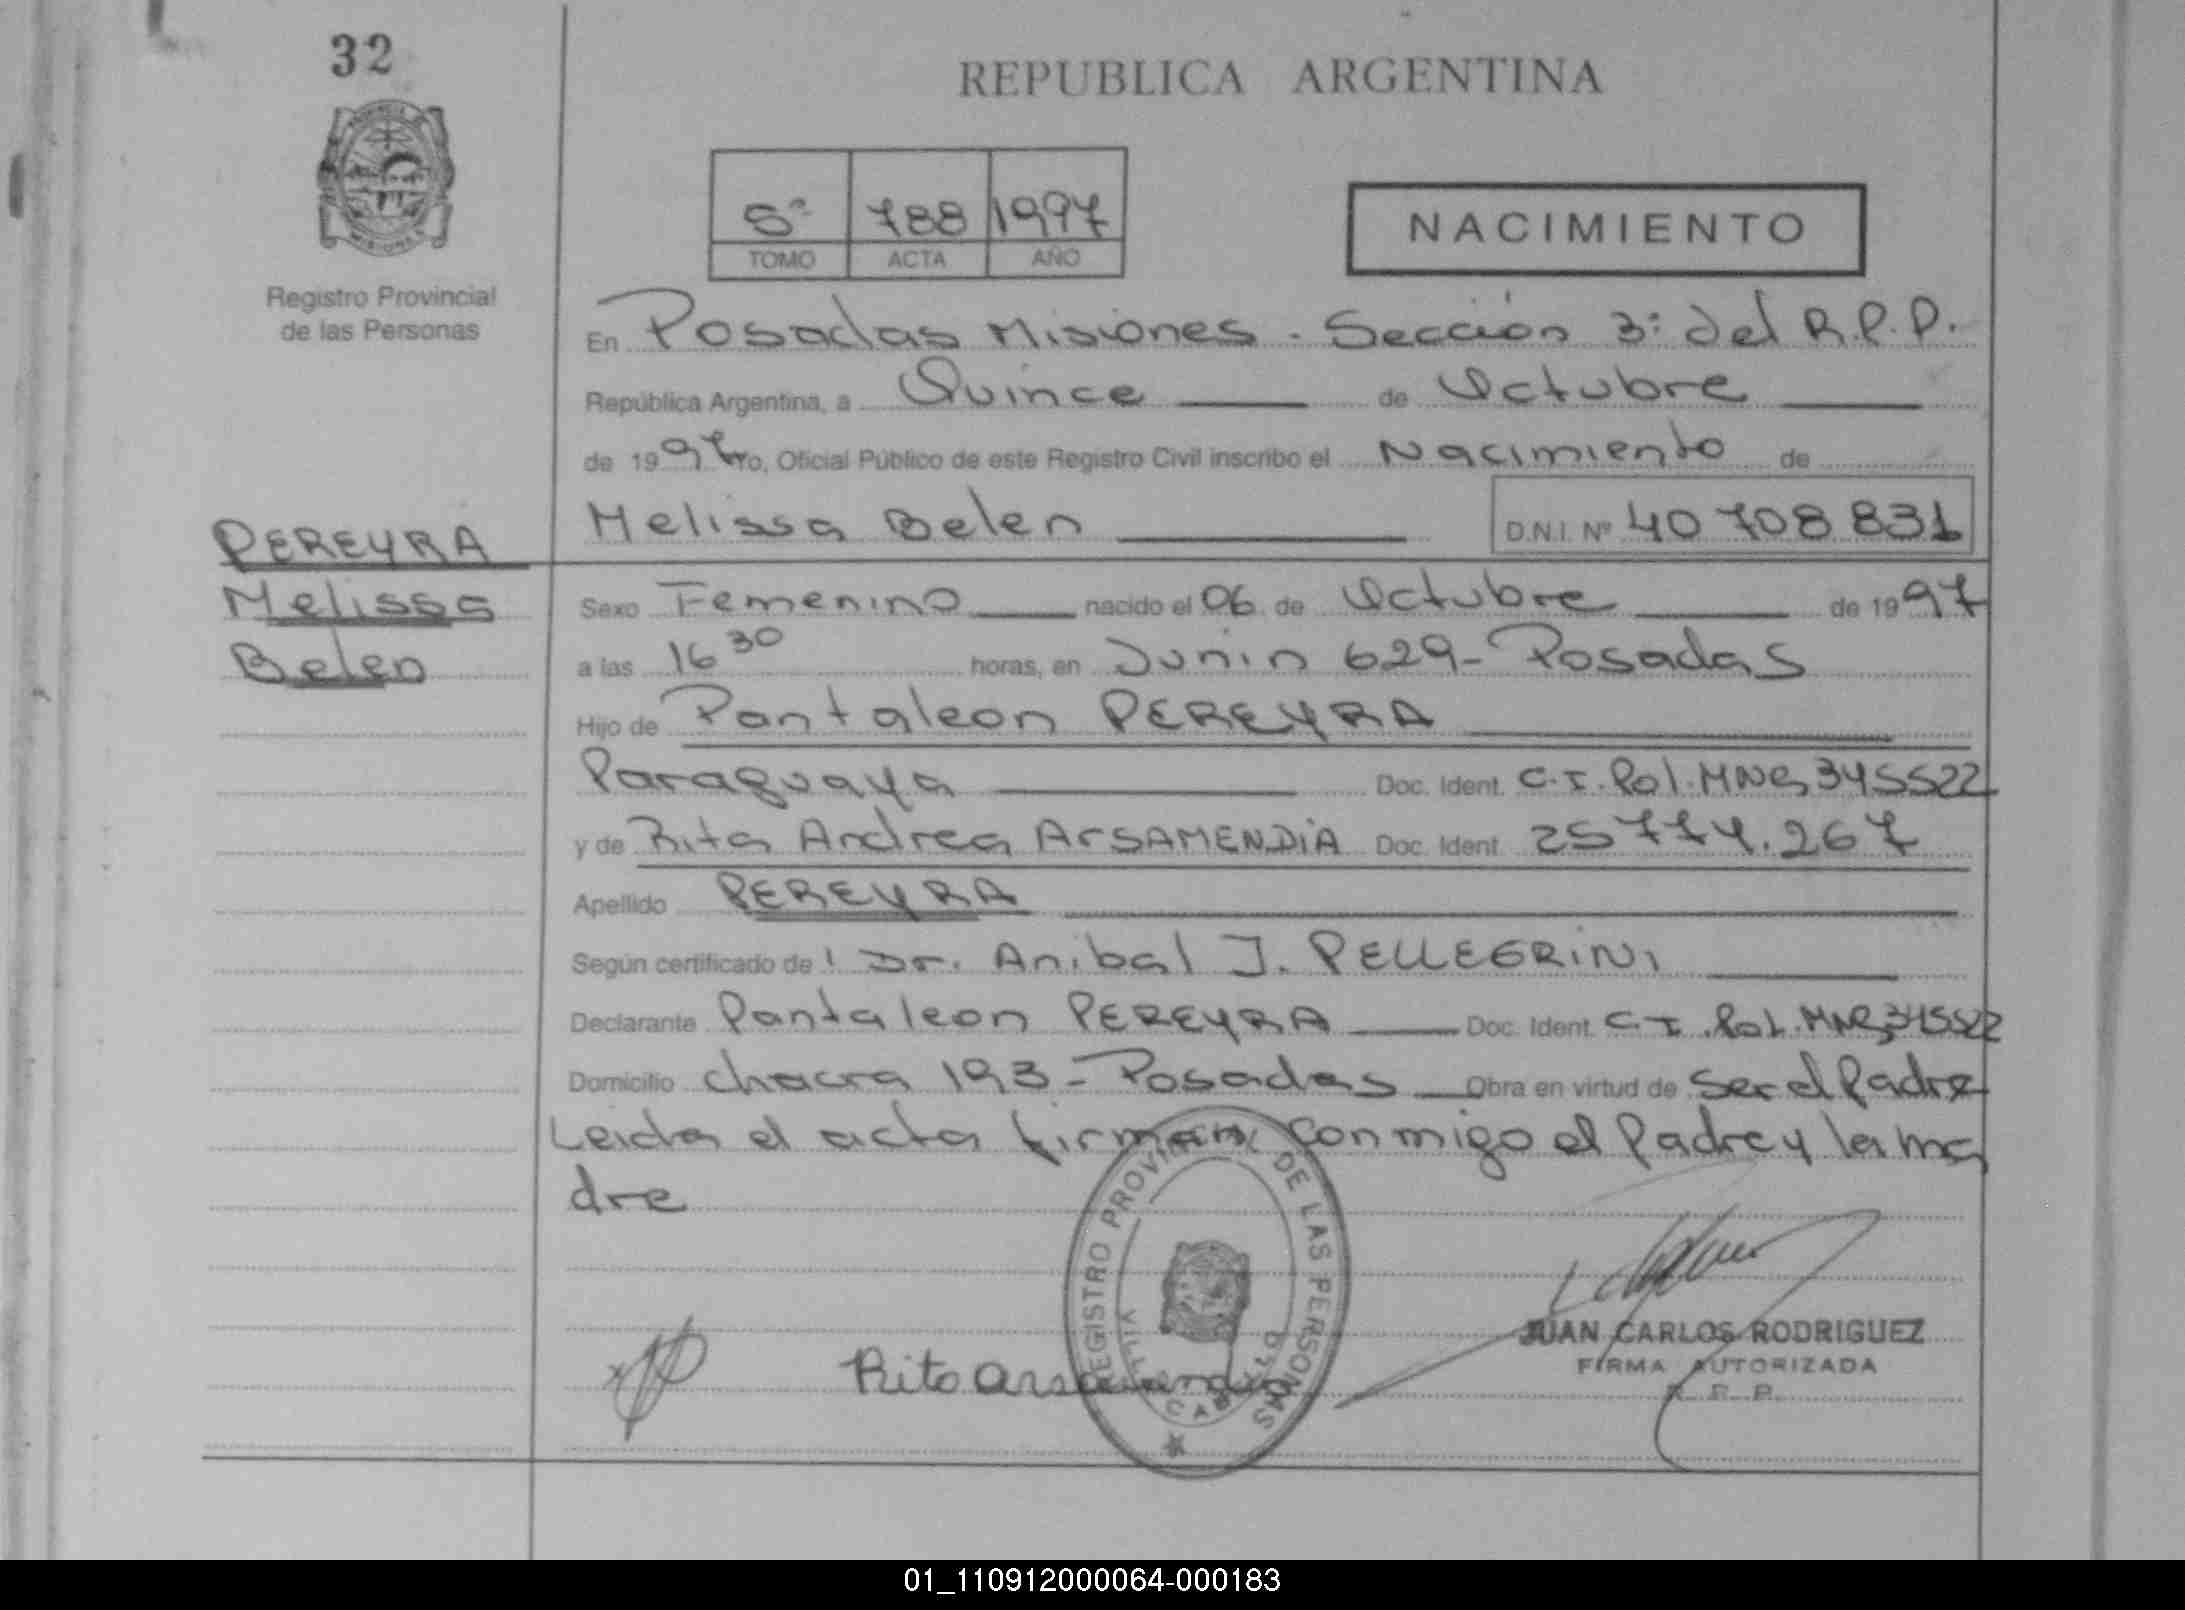 32
REPUBLICA ARGENTINA
5ª 788 1997
TOMO ACTA AÑO
NACIMIENTO
Registro Provincial
de las Personas
En Posadas Misiones - Sección 3ª del R.P.P.
República Argentina, a Quince de Octubre
de 1997 yo, Oficial Público de este Registro Civil inscribo el Nacimiento de
Melissa Belen D.N.I. Nº 40 708 831
PEREYRA
Melissa
Belen
Sexo Femenino nacido el 06 de Octubre de 1997
a las 16 30 horas, en Junin 629 - Posadas
Hijo de Pantaleon PEREYRA
Paraguaya Doc. Ident. C.I. Pol. MNS 345522
y de Rita Andrea ArSAMENDIA Doc. Ident. 25774.267
Apellido PEREYRA
Según certificado de Dr. Anibal J. PELLEGRINI
Declarante Pantaleon PEREYRA Doc. Ident. C.I. Pol. MNS 345522
Domicilio chacra 193 - Posadas Obra en virtud de ser el Padre
Leida el acta firman conmigo el Padre y la ma
dre
REGISTRO PROVINCIAL DE LAS PERSONAS
VILLA CABELLO
Rita Arsamendia
JUAN CARLOS RODRIGUEZ
FIRMA AUTORIZADA
R. P. P.
01_110912000064-000183